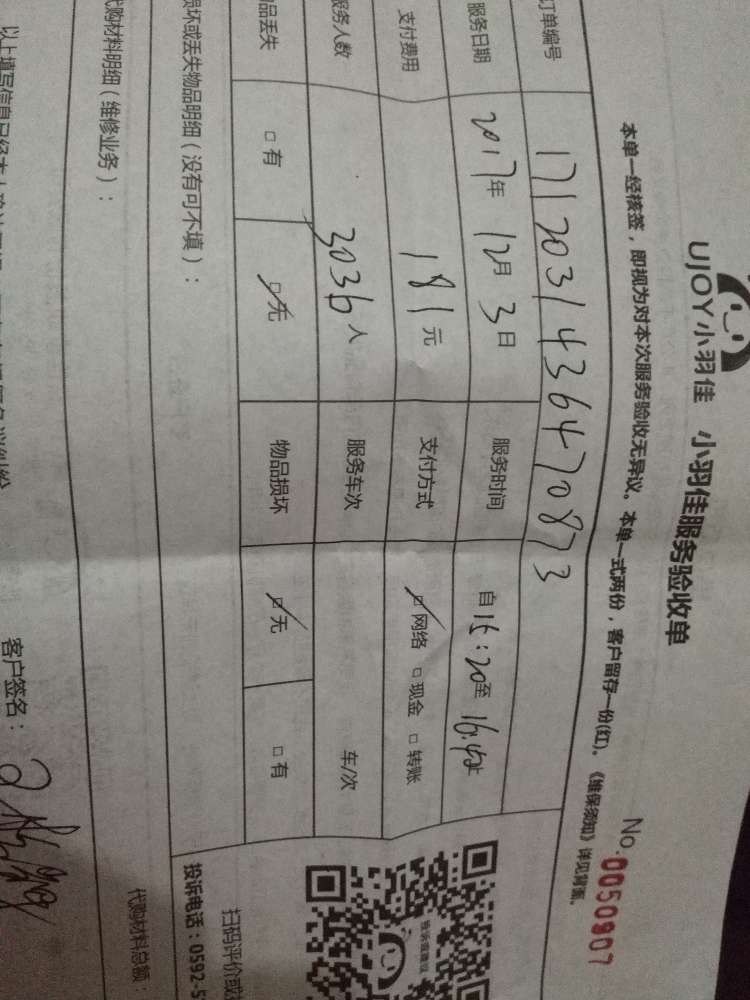 UJOY小羽佳 小羽佳服务验收单
No.0050907
本单一经核签，即视为对本次服务验收无异议。本单一式两份，客户留存一份(红)。《维保须知》详见背面。
订单编号 1712031436470873
服务日期 2017年12月3日 服务时间 自15:20至16:42止
支付费用 181元 支付方式 网络 现金 转账
服务人数 人 服务车次 车/次
品丢失 有 无 物品损坏 无 有
损坏或丢失物品明细（没有可不填）：
代购材料明细（维修业务）：
扫码评价或
投诉电话：0592-5
代购材料总额：
客户签名：